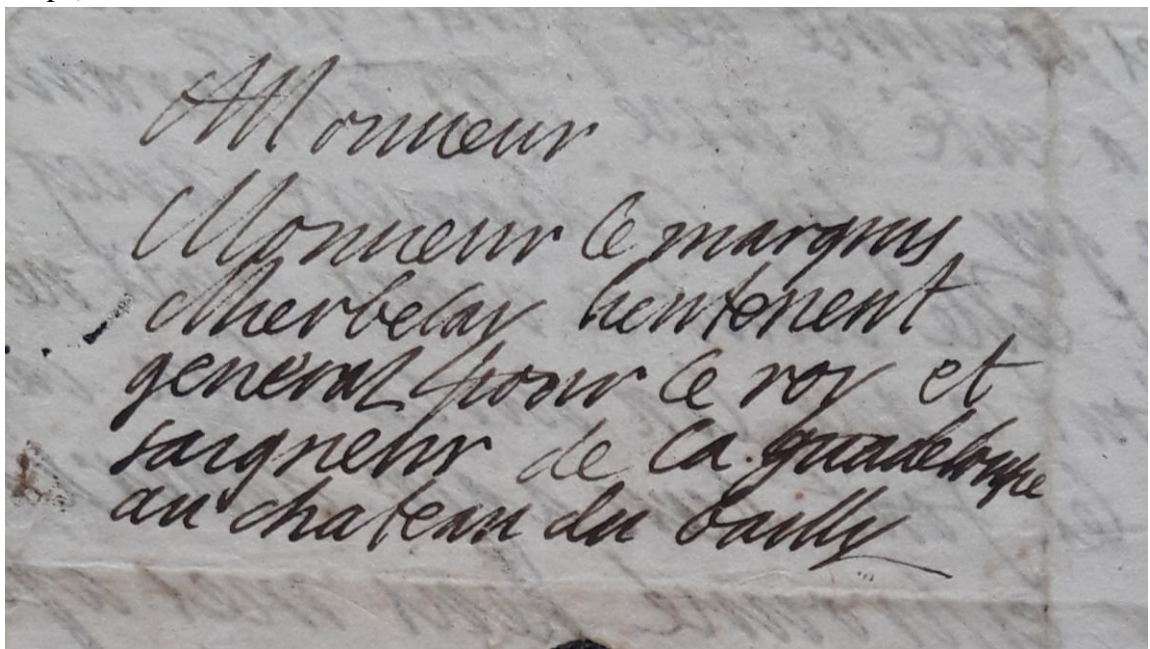 A Monsieur
Monsieur le marquis
dherbelay lieutenent
general pour le roy et
saigneur de la guadeloupe
au chateau du bailly